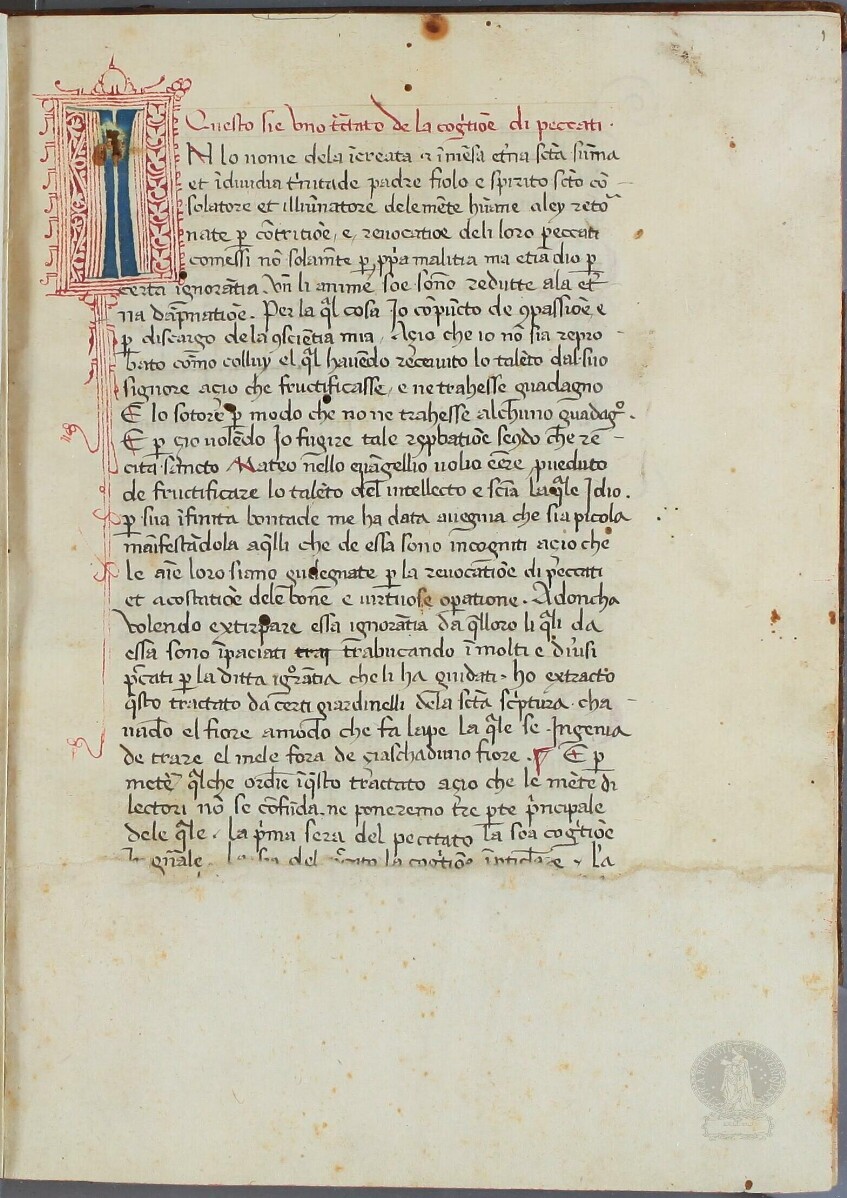 1
Questo sie Vno tr̄ctato de la cog̃tiōe di peccati ·
IN lo nome dela īcreata ⁊ īmēsa et̃na sc̃ta sūma
et īdiuidia t̓nitade padre fiolo e spirito sc̃to cō –
solatore et illūinatore delemēte hūane aley retor̃
nate ꝑ cōtritiōe, e, reuocatiōe deli loro peccati
comessi nō solam̄te ꝑ ꝓp̓a malitia ma etiādio ꝑ
certa ignorātia . Vñ li anime soe sōno redutte ala et̃
na dāpnatiōe . Per la q̄l cosa Jo cōpūcto de ꝯpassiōe, e
ꝑ discargo de la ꝯsciētia mia, Acio che io nō sia repro –
bato cōmo colluy el q̄l hauēdo receiuito lo talēto dal suo
signore acio che fructificasse, e ne trahesse guadagno
E lo sotorē ꝑ modo che no ne trahesse alch̄uno guadag̊ .
E ꝑ cio volēdo Jo fugire tale repbatiōe secōdo che re –
cita sāncto Mateo nello euāngellio uolio ēere ꝓueduto
de fructificare lo talēto del intellecto e sciā la q̄le Jdio .
ꝑ sua īfinita bontade me ha data auegnia che sia picola
māifestādola aq̄lli che de essa sono incogniti acio che
le aīe loro siano gudegnate ꝑ la reuocatiōe di peccati
et acostatiōe dele bone e uirtuose oꝑatione . Adoncha
volendo extirpare essa ignorātia da q̄lloro li q̄li da
essa sono īpaciati trai trabucando ī molti e diūsi
p̄cati ꝑ la ditta ig̊rātia che li ha guidati · ho extracto
q̄sto tractato da certi giardinelli dela sc̃ta sc̓ptura . cha –
uādo el fiore amodo che fa lape la q̄le se Jngenia
de trare el mele fora de ciaschaduno fiore . ¶ E ꝑ
metē q̄lche ordīe ī q̄sto tractato acio che le mēte di
lectori nō se cōfūda . ne poneremo t̓re ꝑte p̓ncipale
dele q̄le . la p̓ma sera del pecctato la soa cog̃tiōe